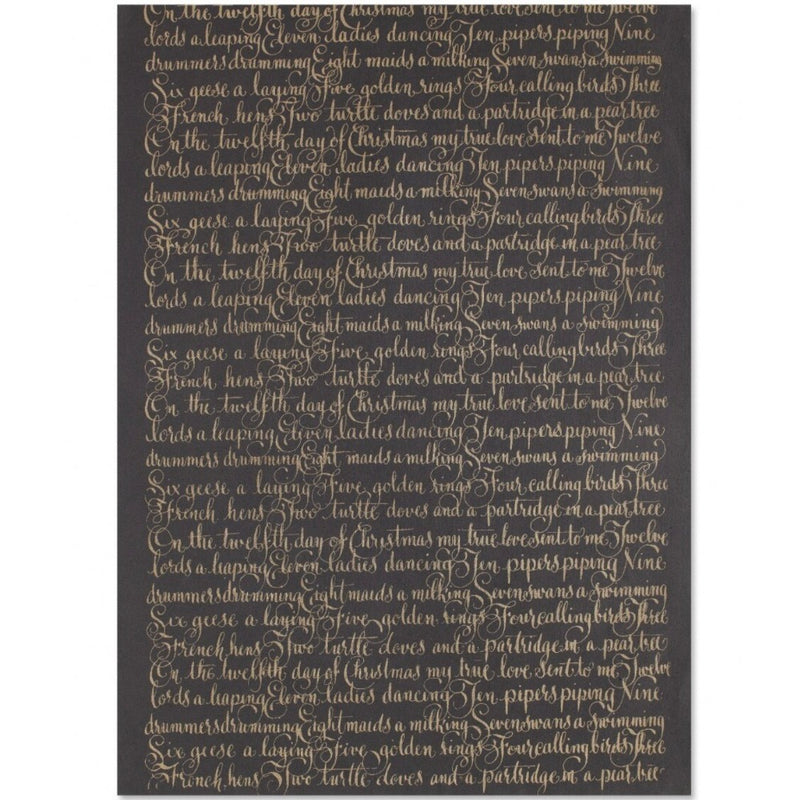 On the twelfth day of Christmas my true love sent to me Twelve
lords a leaping Eleven ladies dancing Ten pipers piping Nine
drummers drumming Eight maids a milking Seven swans a swimming
Six geese a laying Five golden rings Four calling birds Three
French hens Two turtle doves and a partridge in a pear tree
On the twelfth day of Christmas my true love sent to me Twelve
lords a leaping Eleven ladies dancing Ten pipers piping Nine
drummers drumming Eight maids a milking Seven swans a swimming
Six geese a laying Five golden rings Four calling birds Three
French hens Two turtle doves and a partridge in a pear tree
On the twelfth day of Christmas my true love sent to me Twelve
lords a leaping Eleven ladies dancing Ten pipers piping Nine
drummers drumming Eight maids a milking Seven swans a swimming
Six geese a laying Five golden rings Four calling birds Three
French hens Two turtle doves and a partridge in a pear tree
On the twelfth day of Christmas my true love sent to me Twelve
lords a leaping Eleven ladies dancing Ten pipers piping Nine
drummers drumming Eight maids a milking Seven swans a swimming
Six geese a laying Five golden rings Four calling birds Three
French hens Two turtle doves and a partridge in a pear tree
On the twelfth day of Christmas my true love sent to me Twelve
lords a leaping Eleven ladies dancing Ten pipers piping Nine
drummers drumming Eight maids a milking Seven swans a swimming
Six geese a laying Five golden rings Four calling birds Three
French hens Two turtle doves and a partridge in a pear tree
On the twelfth day of Christmas my true love sent to me Twelve
lords a leaping Eleven ladies dancing Ten pipers piping Nine
drummers drumming Eight maids a milking Seven swans a swimming
Six geese a laying Five golden rings Four calling birds Three
French hens Two turtle doves and a partridge in a pear tree